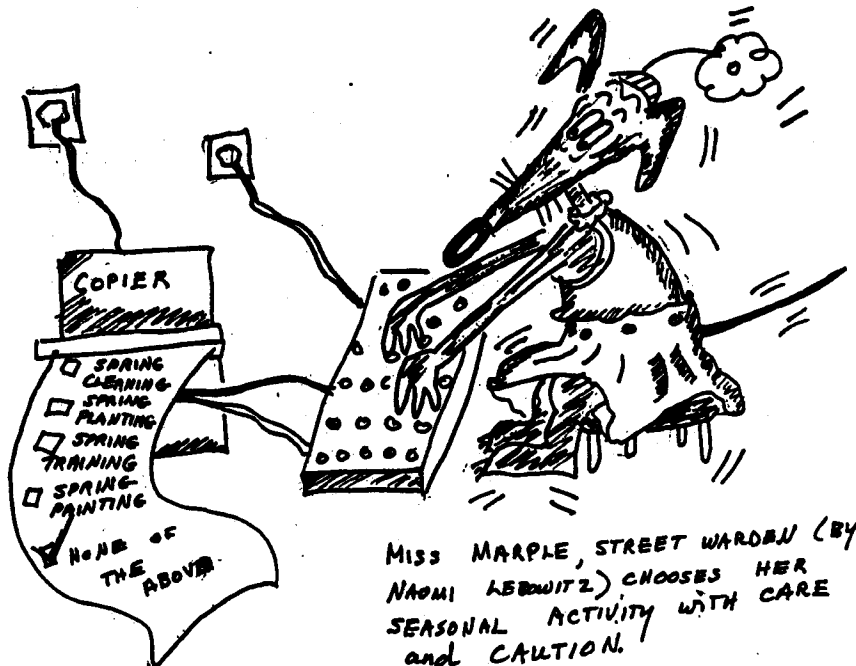 COPIER
SPRING
CLEANING
SPRING
PLANTING
SPRING
TRAINING
SPRING
PAINTING
NONE OF
THE
ABOVE
MISS MARPLE, STREET WARDEN (BY
NAOMI LEBOWITZ) CHOOSES HER
SEASONAL ACTIVITY WITH CARE
and CAUTION.